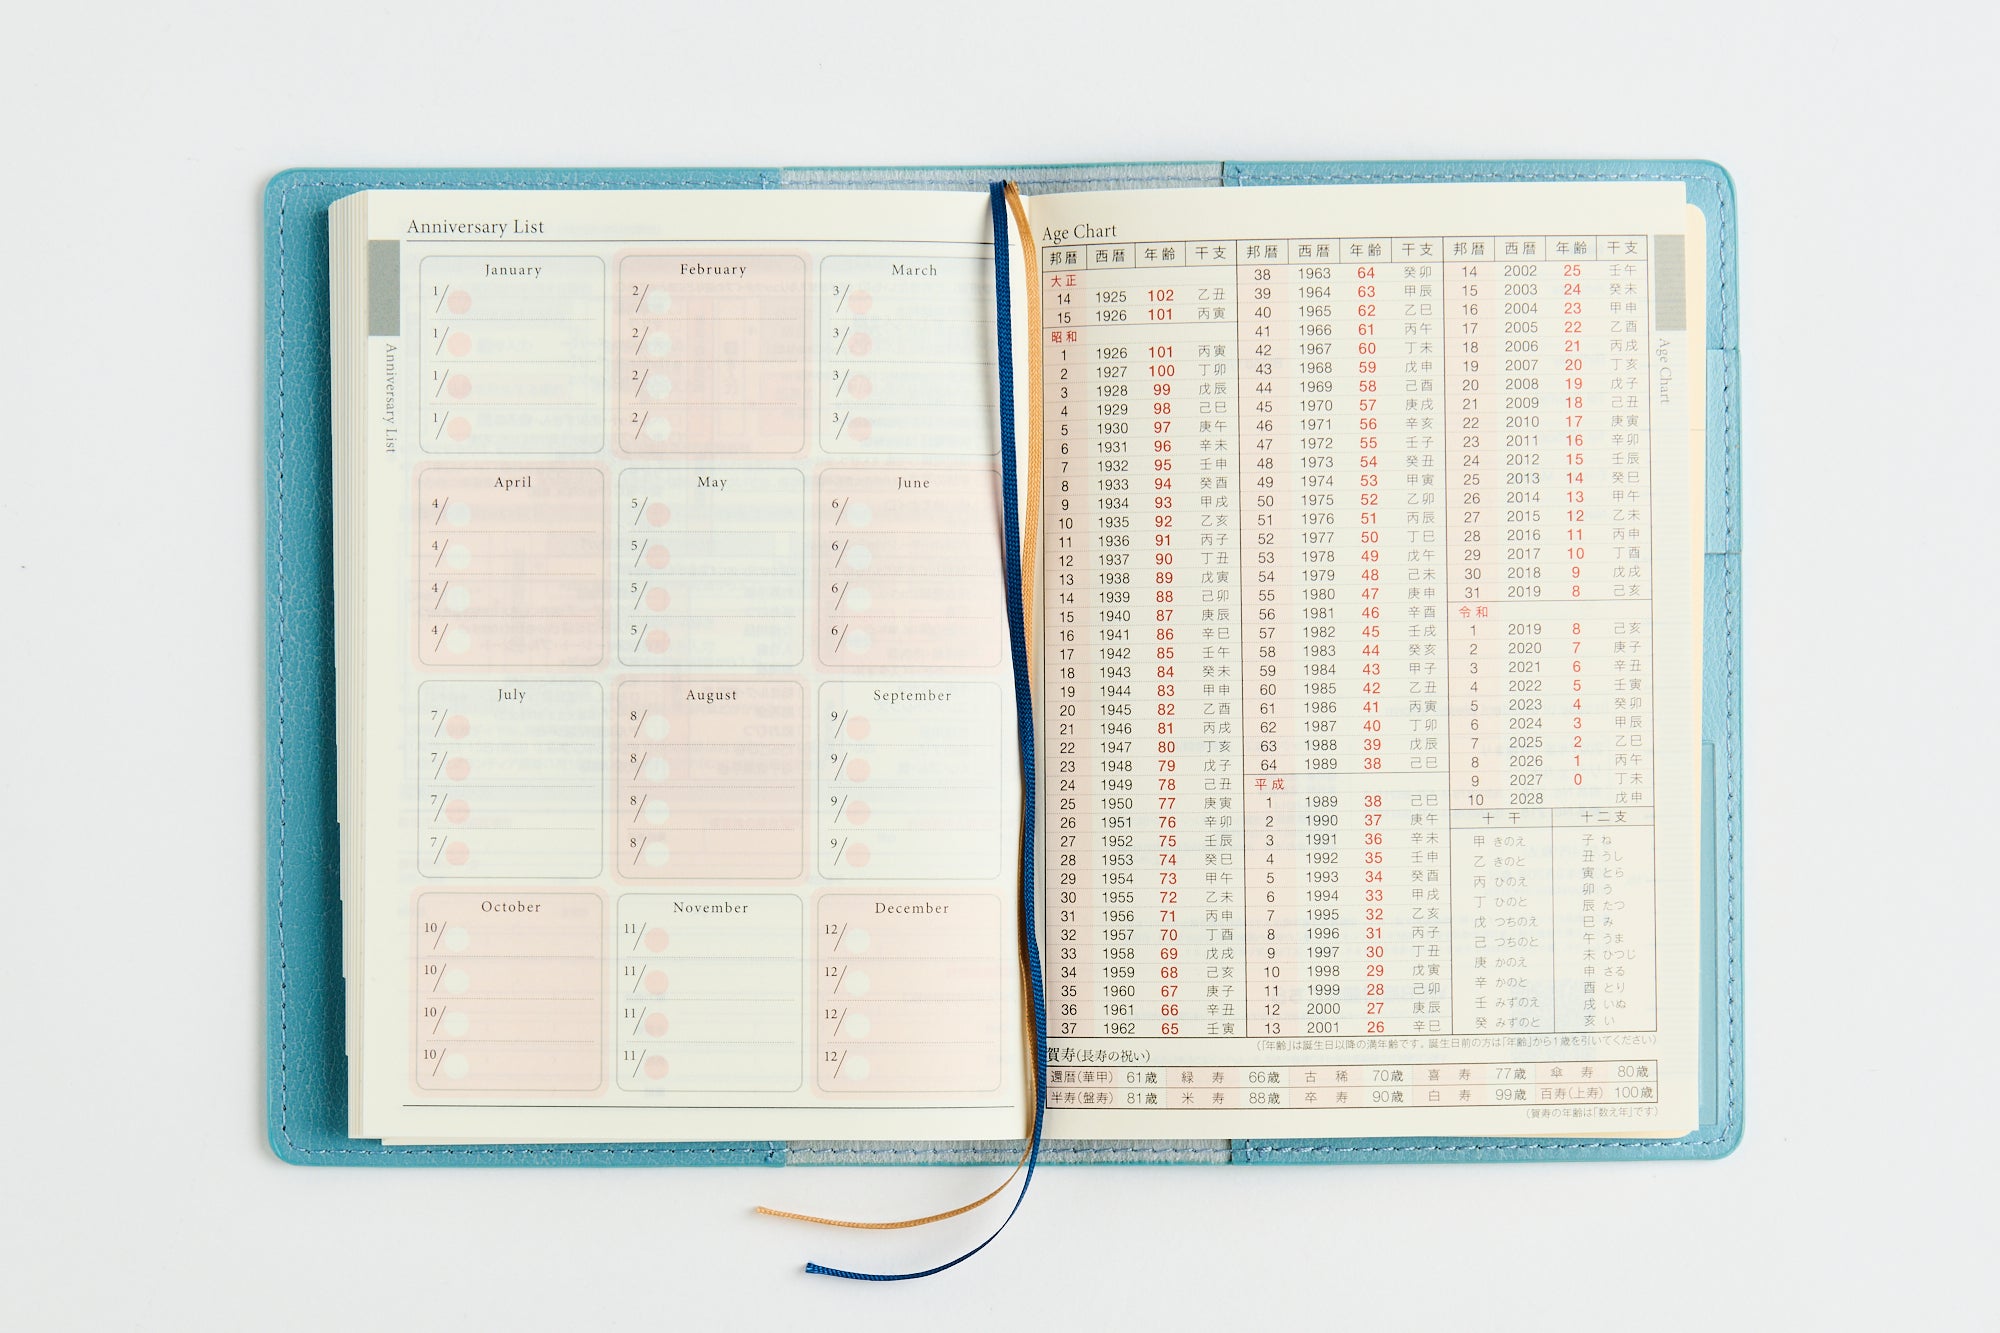 Anniversary List
January
1/
1/
1/
1/
February
2/
2/
2/
2/
March
3/
3/
3/
3/
April
4/
4/
4/
4/
May
5/
5/
5/
5/
June
6/
6/
6/
6/
July
7/
7/
7/
7/
August
8/
8/
8/
8/
September
9/
9/
9/
9/
October
10/
10/
10/
10/
November
11/
11/
11/
11/
December
12/
12/
12/
12/
Anniversary List
Age Chart
邦暦 西暦 年齢 干支
大正
14 1925 102 乙丑
15 1926 101 丙寅
昭和
1 1926 101 丙寅
2 1927 100 丁卯
3 1928 99 戊辰
4 1929 98 己巳
5 1930 97 庚午
6 1931 96 辛未
7 1932 95 壬申
8 1933 94 癸酉
9 1934 93 甲戌
10 1935 92 乙亥
11 1936 91 丙子
12 1937 90 丁丑
13 1938 89 戊寅
14 1939 88 己卯
15 1940 87 庚辰
16 1941 86 辛巳
17 1942 85 壬午
18 1943 84 癸未
19 1944 83 甲申
20 1945 82 乙酉
21 1946 81 丙戌
22 1947 80 丁亥
23 1948 79 戊子
24 1949 78 己丑
25 1950 77 庚寅
26 1951 76 辛卯
27 1952 75 壬辰
28 1953 74 癸巳
29 1954 73 甲午
30 1955 72 乙未
31 1956 71 丙申
32 1957 70 丁酉
33 1958 69 戊戌
34 1959 68 己亥
35 1960 67 庚子
36 1961 66 辛丑
37 1962 65 壬寅
邦暦 西暦 年齢 干支
38 1963 64 癸卯
39 1964 63 甲辰
40 1965 62 乙巳
41 1966 61 丙午
42 1967 60 丁未
43 1968 59 戊申
44 1969 58 己酉
45 1970 57 庚戌
46 1971 56 辛亥
47 1972 55 壬子
48 1973 54 癸丑
49 1974 53 甲寅
50 1975 52 乙卯
51 1976 51 丙辰
52 1977 50 丁巳
53 1978 49 戊午
54 1979 48 己未
55 1980 47 庚申
56 1981 46 辛酉
57 1982 45 壬戌
58 1983 44 癸亥
59 1984 43 甲子
60 1985 42 乙丑
61 1986 41 丙寅
62 1987 40 丁卯
63 1988 39 戊辰
64 1989 38 己巳
平成
1 1989 38 己巳
2 1990 37 庚午
3 1991 36 辛未
4 1992 35 壬申
5 1993 34 癸酉
6 1994 33 甲戌
7 1995 32 乙亥
8 1996 31 丙子
9 1997 30 丁丑
10 1998 29 戊寅
11 1999 28 己卯
12 2000 27 庚辰
13 2001 26 辛巳
邦暦 西暦 年齢 干支
14 2002 25 壬午
15 2003 24 癸未
16 2004 23 甲申
17 2005 22 乙酉
18 2006 21 丙戌
19 2007 20 丁亥
20 2008 19 戊子
21 2009 18 己丑
22 2010 17 庚寅
23 2011 16 辛卯
24 2012 15 壬辰
25 2013 14 癸巳
26 2014 13 甲午
27 2015 12 乙未
28 2016 11 丙申
29 2017 10 丁酉
30 2018 9 戊戌
31 2019 8 己亥
令和
1 2019 8 己亥
2 2020 7 庚子
3 2021 6 辛丑
4 2022 5 壬寅
5 2023 4 癸卯
6 2024 3 甲辰
7 2025 2 乙巳
8 2026 1 丙午
9 2027 0 丁未
10 2028 戊申
十干
甲 きのえ
乙 きのと
丙 ひのえ
丁 ひのと
戊 つちのえ
己 つちのと
庚 かのえ
辛 かのと
壬 みずのえ
癸 みずのと
十二支
子 ね
丑 うし
寅 とら
卯 う
辰 たつ
巳 み
午 うま
未 ひつじ
申 さる
酉 とり
戌 いぬ
亥 い
(「年齢」は誕生日以降の満年齢です。誕生日前の方は「年齢」から1歳を引いてください)
賀寿(長寿の祝い)
還暦(華甲) 61歳 緑寿 66歳 古稀 70歳 喜寿 77歳 傘寿 80歳
半寿(盤寿) 81歳 米寿 88歳 卒寿 90歳 白寿 99歳 百寿(上寿) 100歳
(賀寿の年齢は「数え年」です)
Age Chart